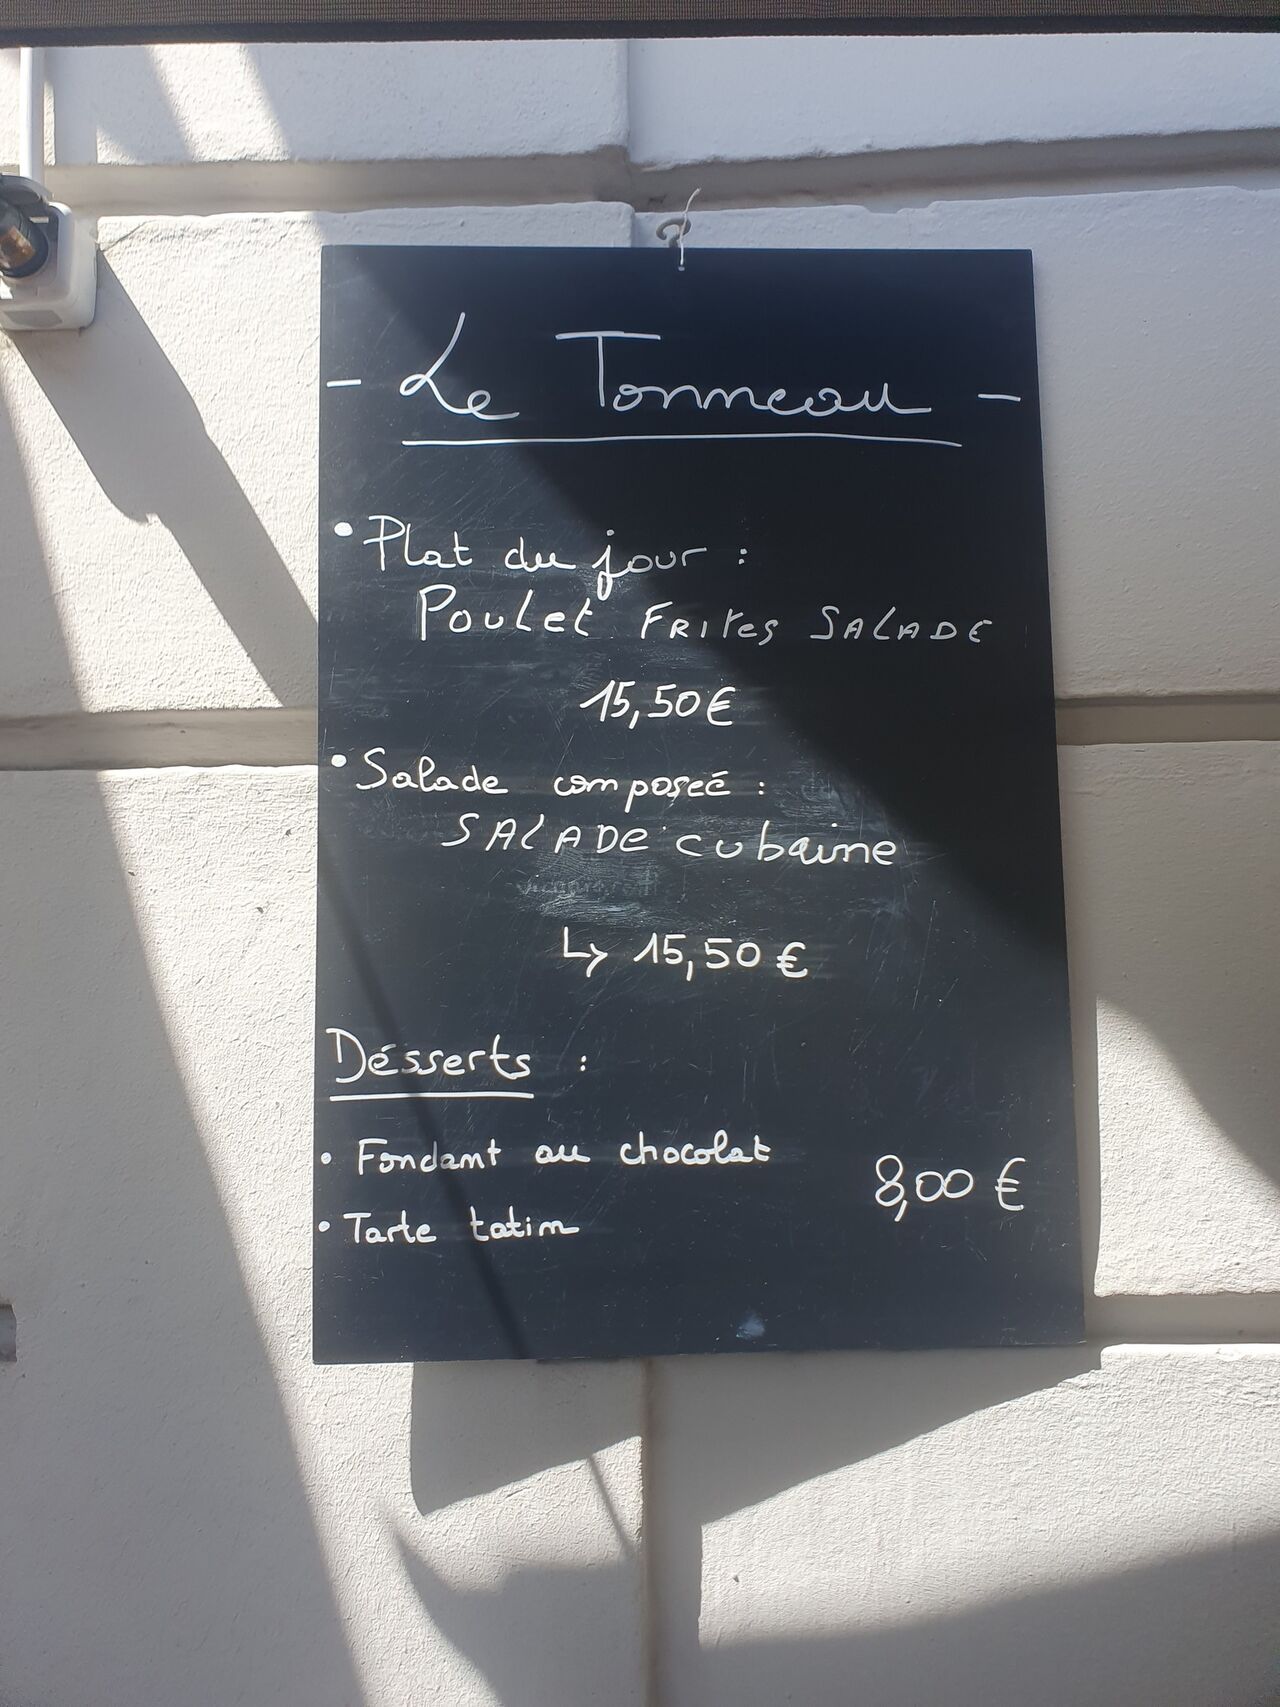 - Le Tonneau -
• Plat du jour :
Poulet Frites SALADE
15,50€
• Salade composeé :
SALADE cubaine
↳ 15,50 €
Désserts :
• Fondant au chocolat
8,00 €
• Tarte tatin